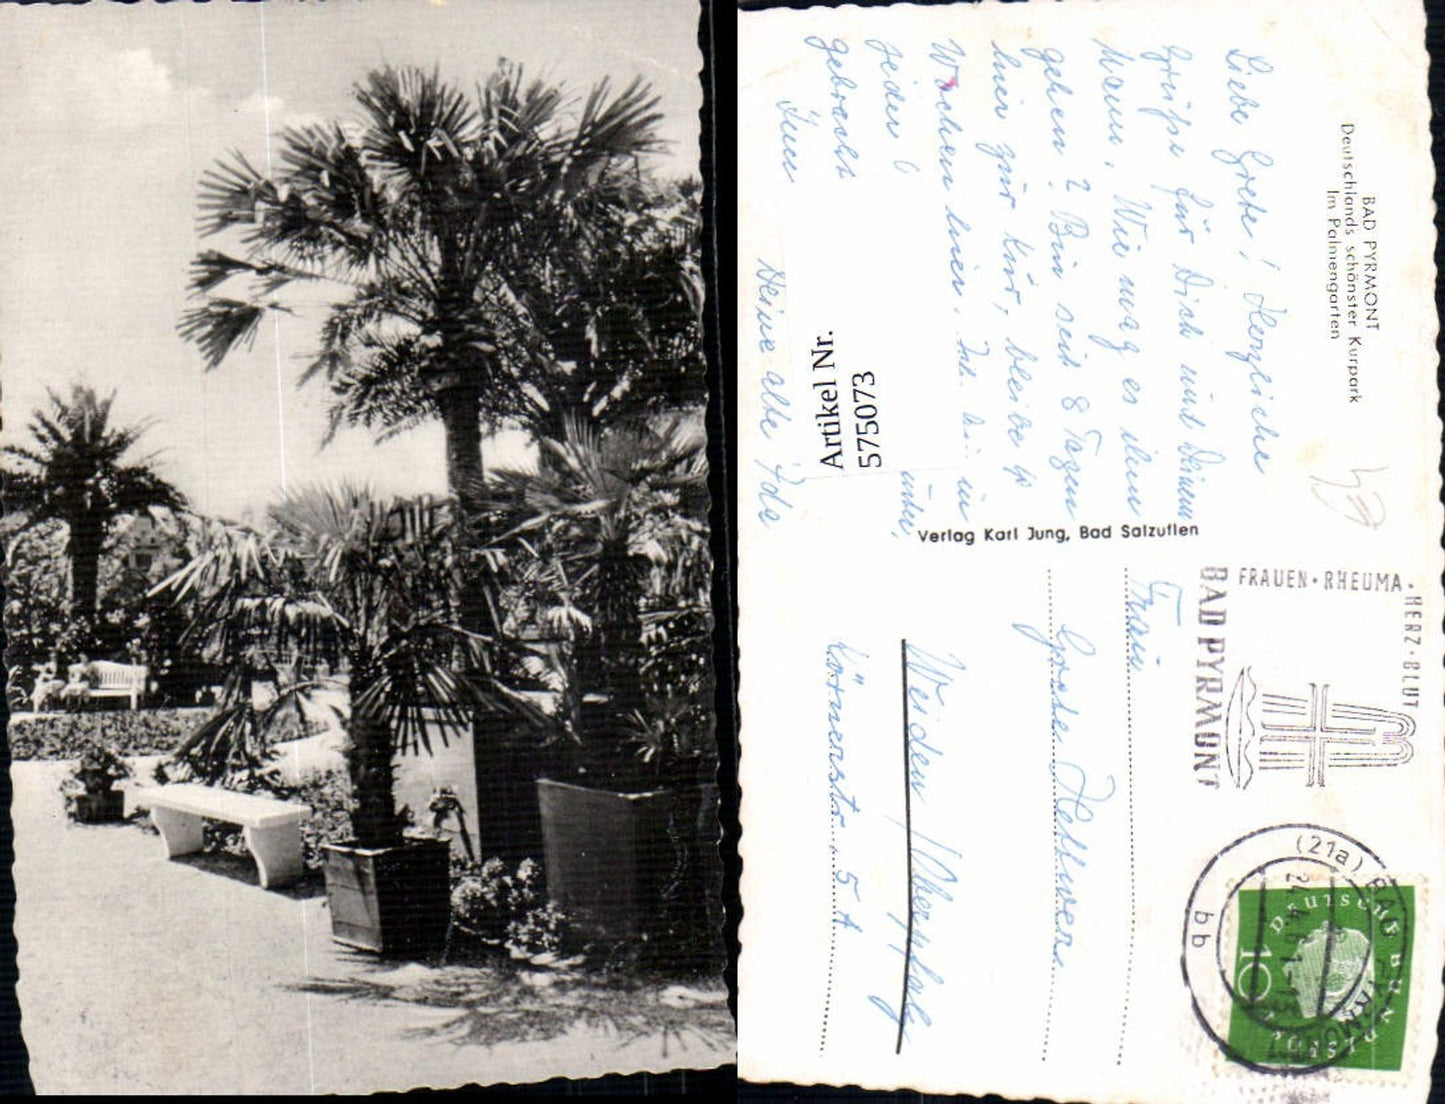 BAD PYRMONT
Deutschlands schönster Kurpark
Im Palmengarten
Liebe Grete! Herzliche
Grüße für Dich und Deinen
Mann. Wie mag es ihm
gehen? Bin seit 8 Tagen
hier zur Kur, bleibe 4
Wochen hier.
leider
gebracht
Deine alte Ida
Artikel Nr.
575073
Verlag Karl Jung, Bad Salzuflen
FRAUEN · RHEUMA ·
HERZ · BLUT
BAD PYRMONT
(21a) BAD PYRMONT
bb
DEUTSCHE BUNDESPOST
10
Frau
Grete
Weiden/Oberpfalz
Körnerstr. 5A